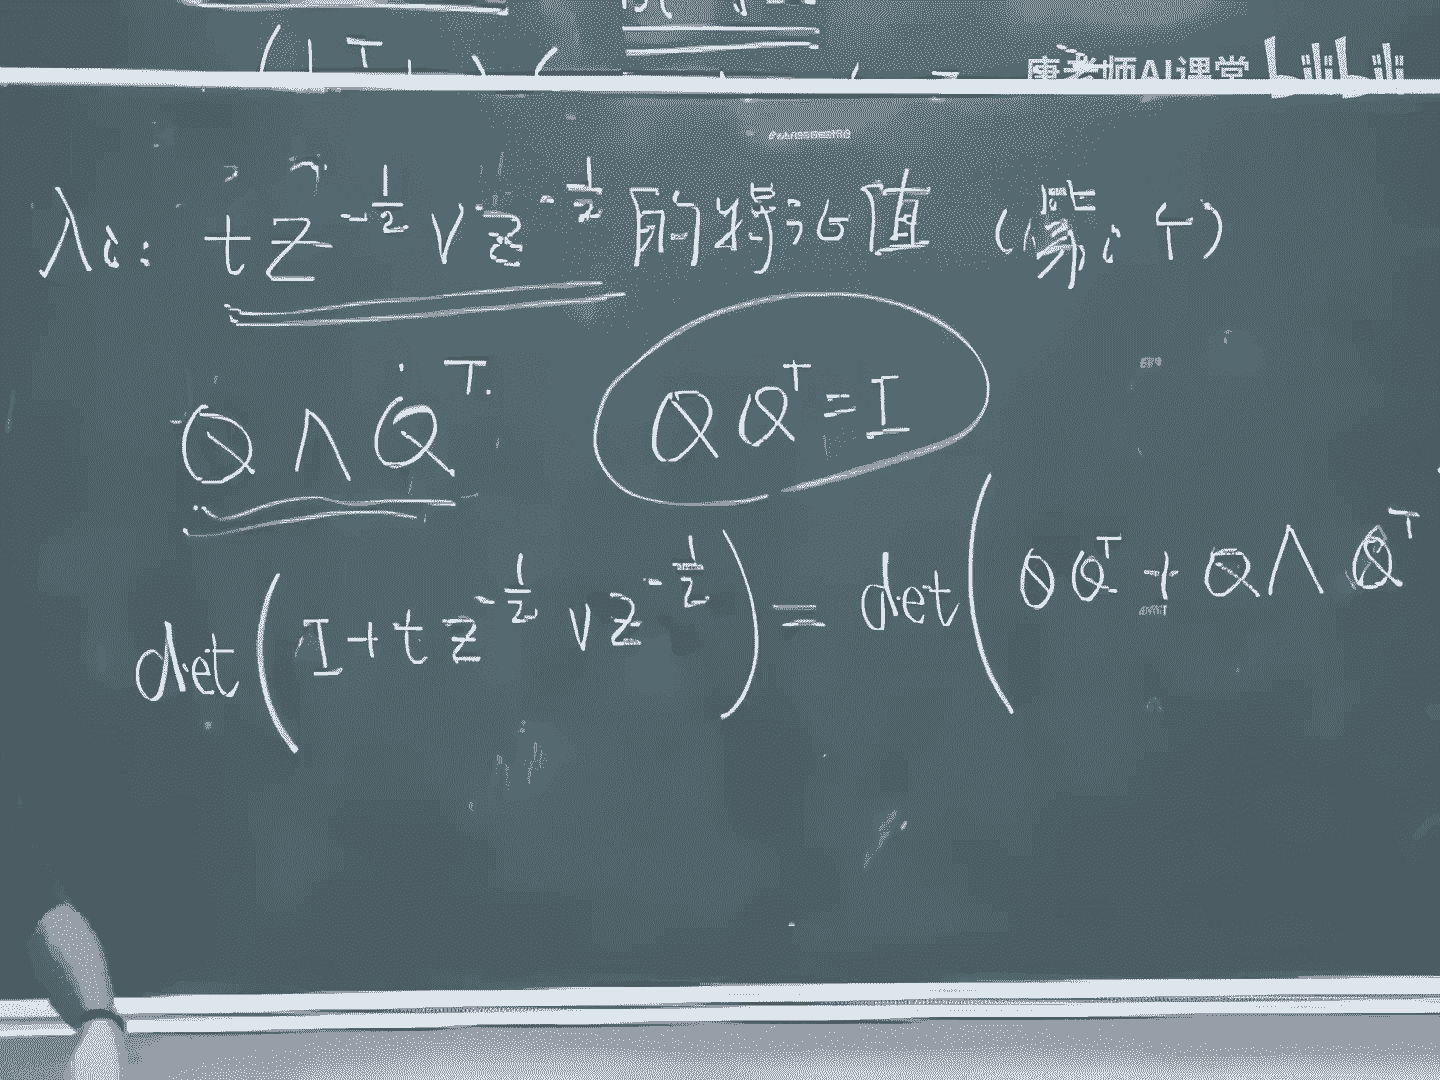 唐老师AI课堂 bilibili
λi: tZ^{-1/2}VZ^{-1/2}的特征值(第i个)
QΛQ^T. QQ^T=I
det(I+tZ^{-1/2}VZ^{-1/2})=det(QQ^T+QΛQ^T